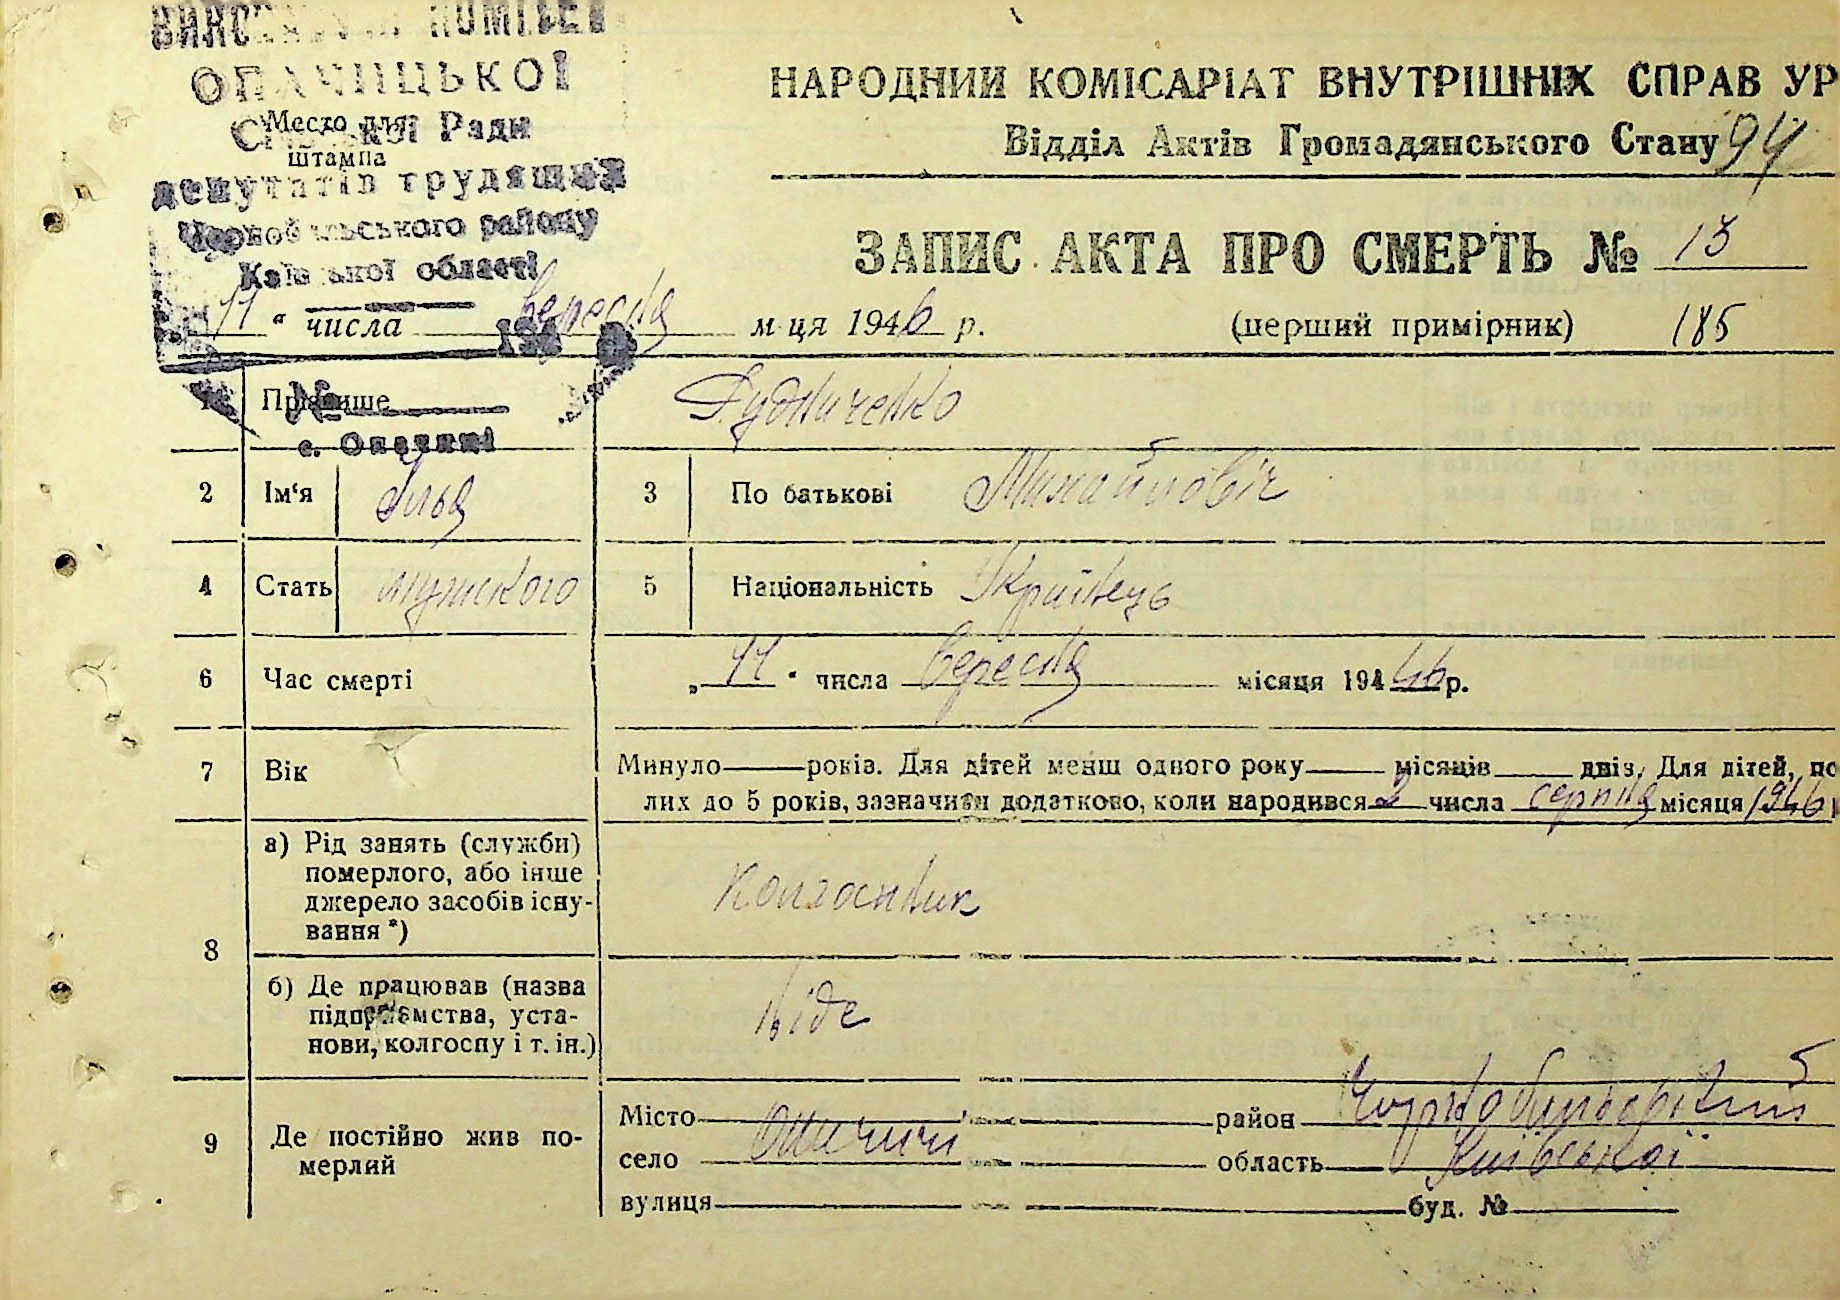 ВИКОНАВЧИЙ КОМІТЕТ
ОПАЧИЦЬКОЇ
Сільської Ради
Место для
штампа
депутатів трудящих
Чорнобильського району
Київської області
194
№
с. Опачичі
НАРОДНИЙ КОМІСАРІАТ ВНУТРІШНІХ СПРАВ УР
Відділ Актів Громадянського Стану 94
ЗАПИС АКТА ПРО СМЕРТЬ № 13
„ 11 “ числа вересня м-ця 1946 р. (перший примірник) 185
1 Прізвище Рудниченко
2 Ім‘я Ілья 3 По батькові Михайловіч
4 Стать мужского 5 Національність Українець
6 Час смерті „ 11 “ числа вересня місяця 194 46 р.
7 Вік Минуло років. Для дітей менш одного року місяців днів. Для дітей, по
лих до 5 років, зазначити додатково, коли народився 2 числа серпня місяця 1946
8 а) Рід занять (служби)
померлого, або інше
джерело засобів існу-
вання *)
колгосник
б) Де працював (назва
підприємства, уста-
нови, колгоспу і т. ін.)
ніде
9 Де постійно жив по-
мерлий
Місто район Чорнобильський
село Опачичи область Київської
вулиця буд. №